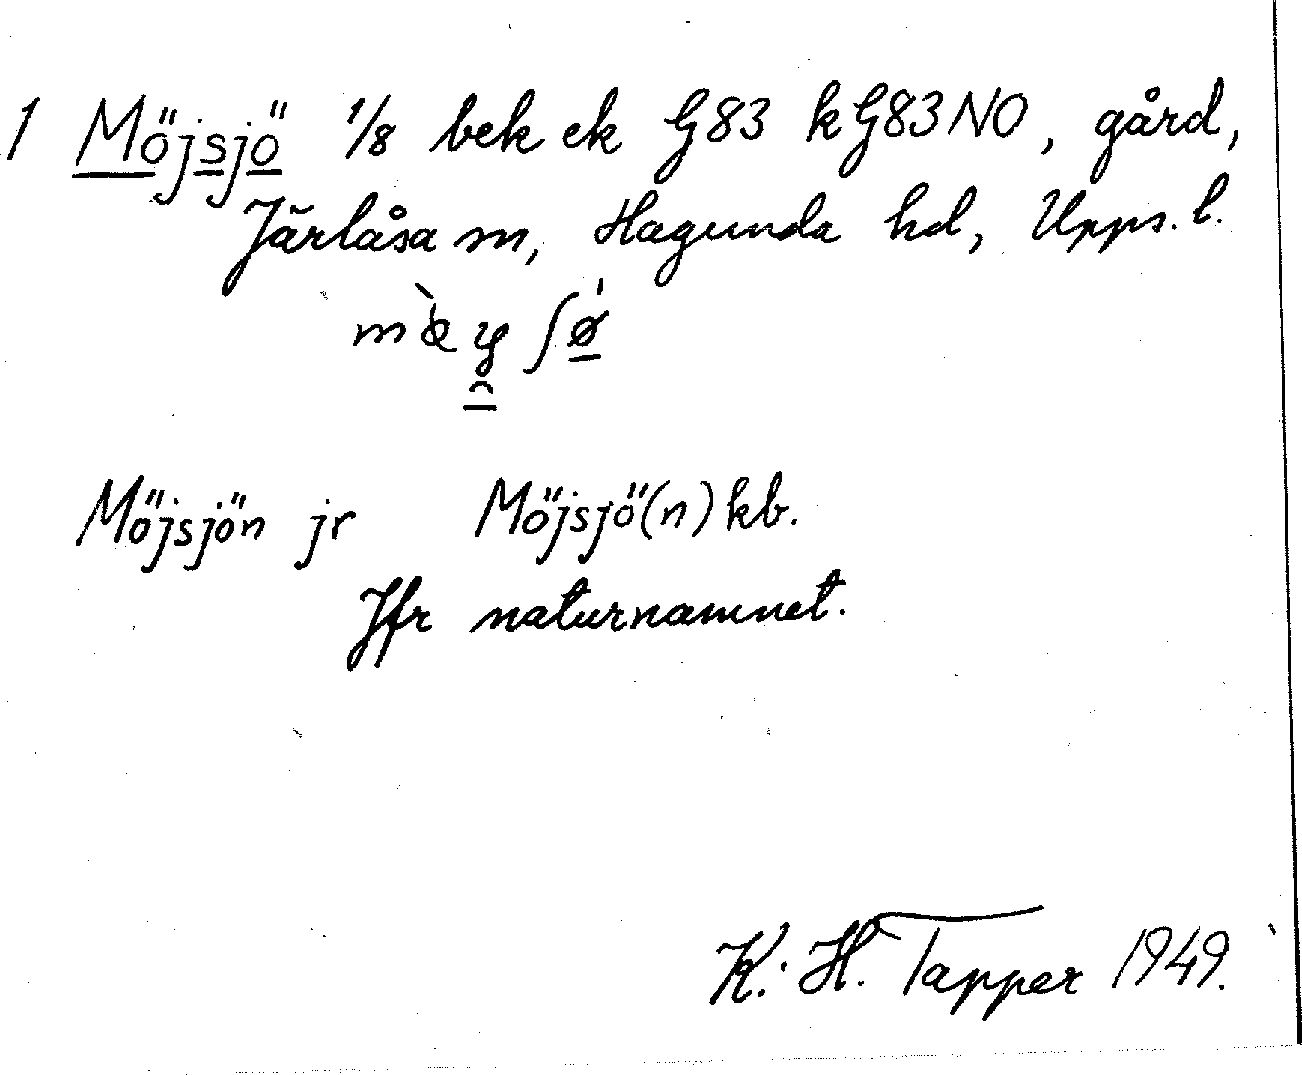 1 Möjsjö 1/8 bek ek G83 kG83NO, gård,
Järlåsa sn, Hagunda hd, Upps. l.
Möjsjön jr Möjsjö(n) kb.
Jfr naturnamnet.
K. H. Tapper 1949.